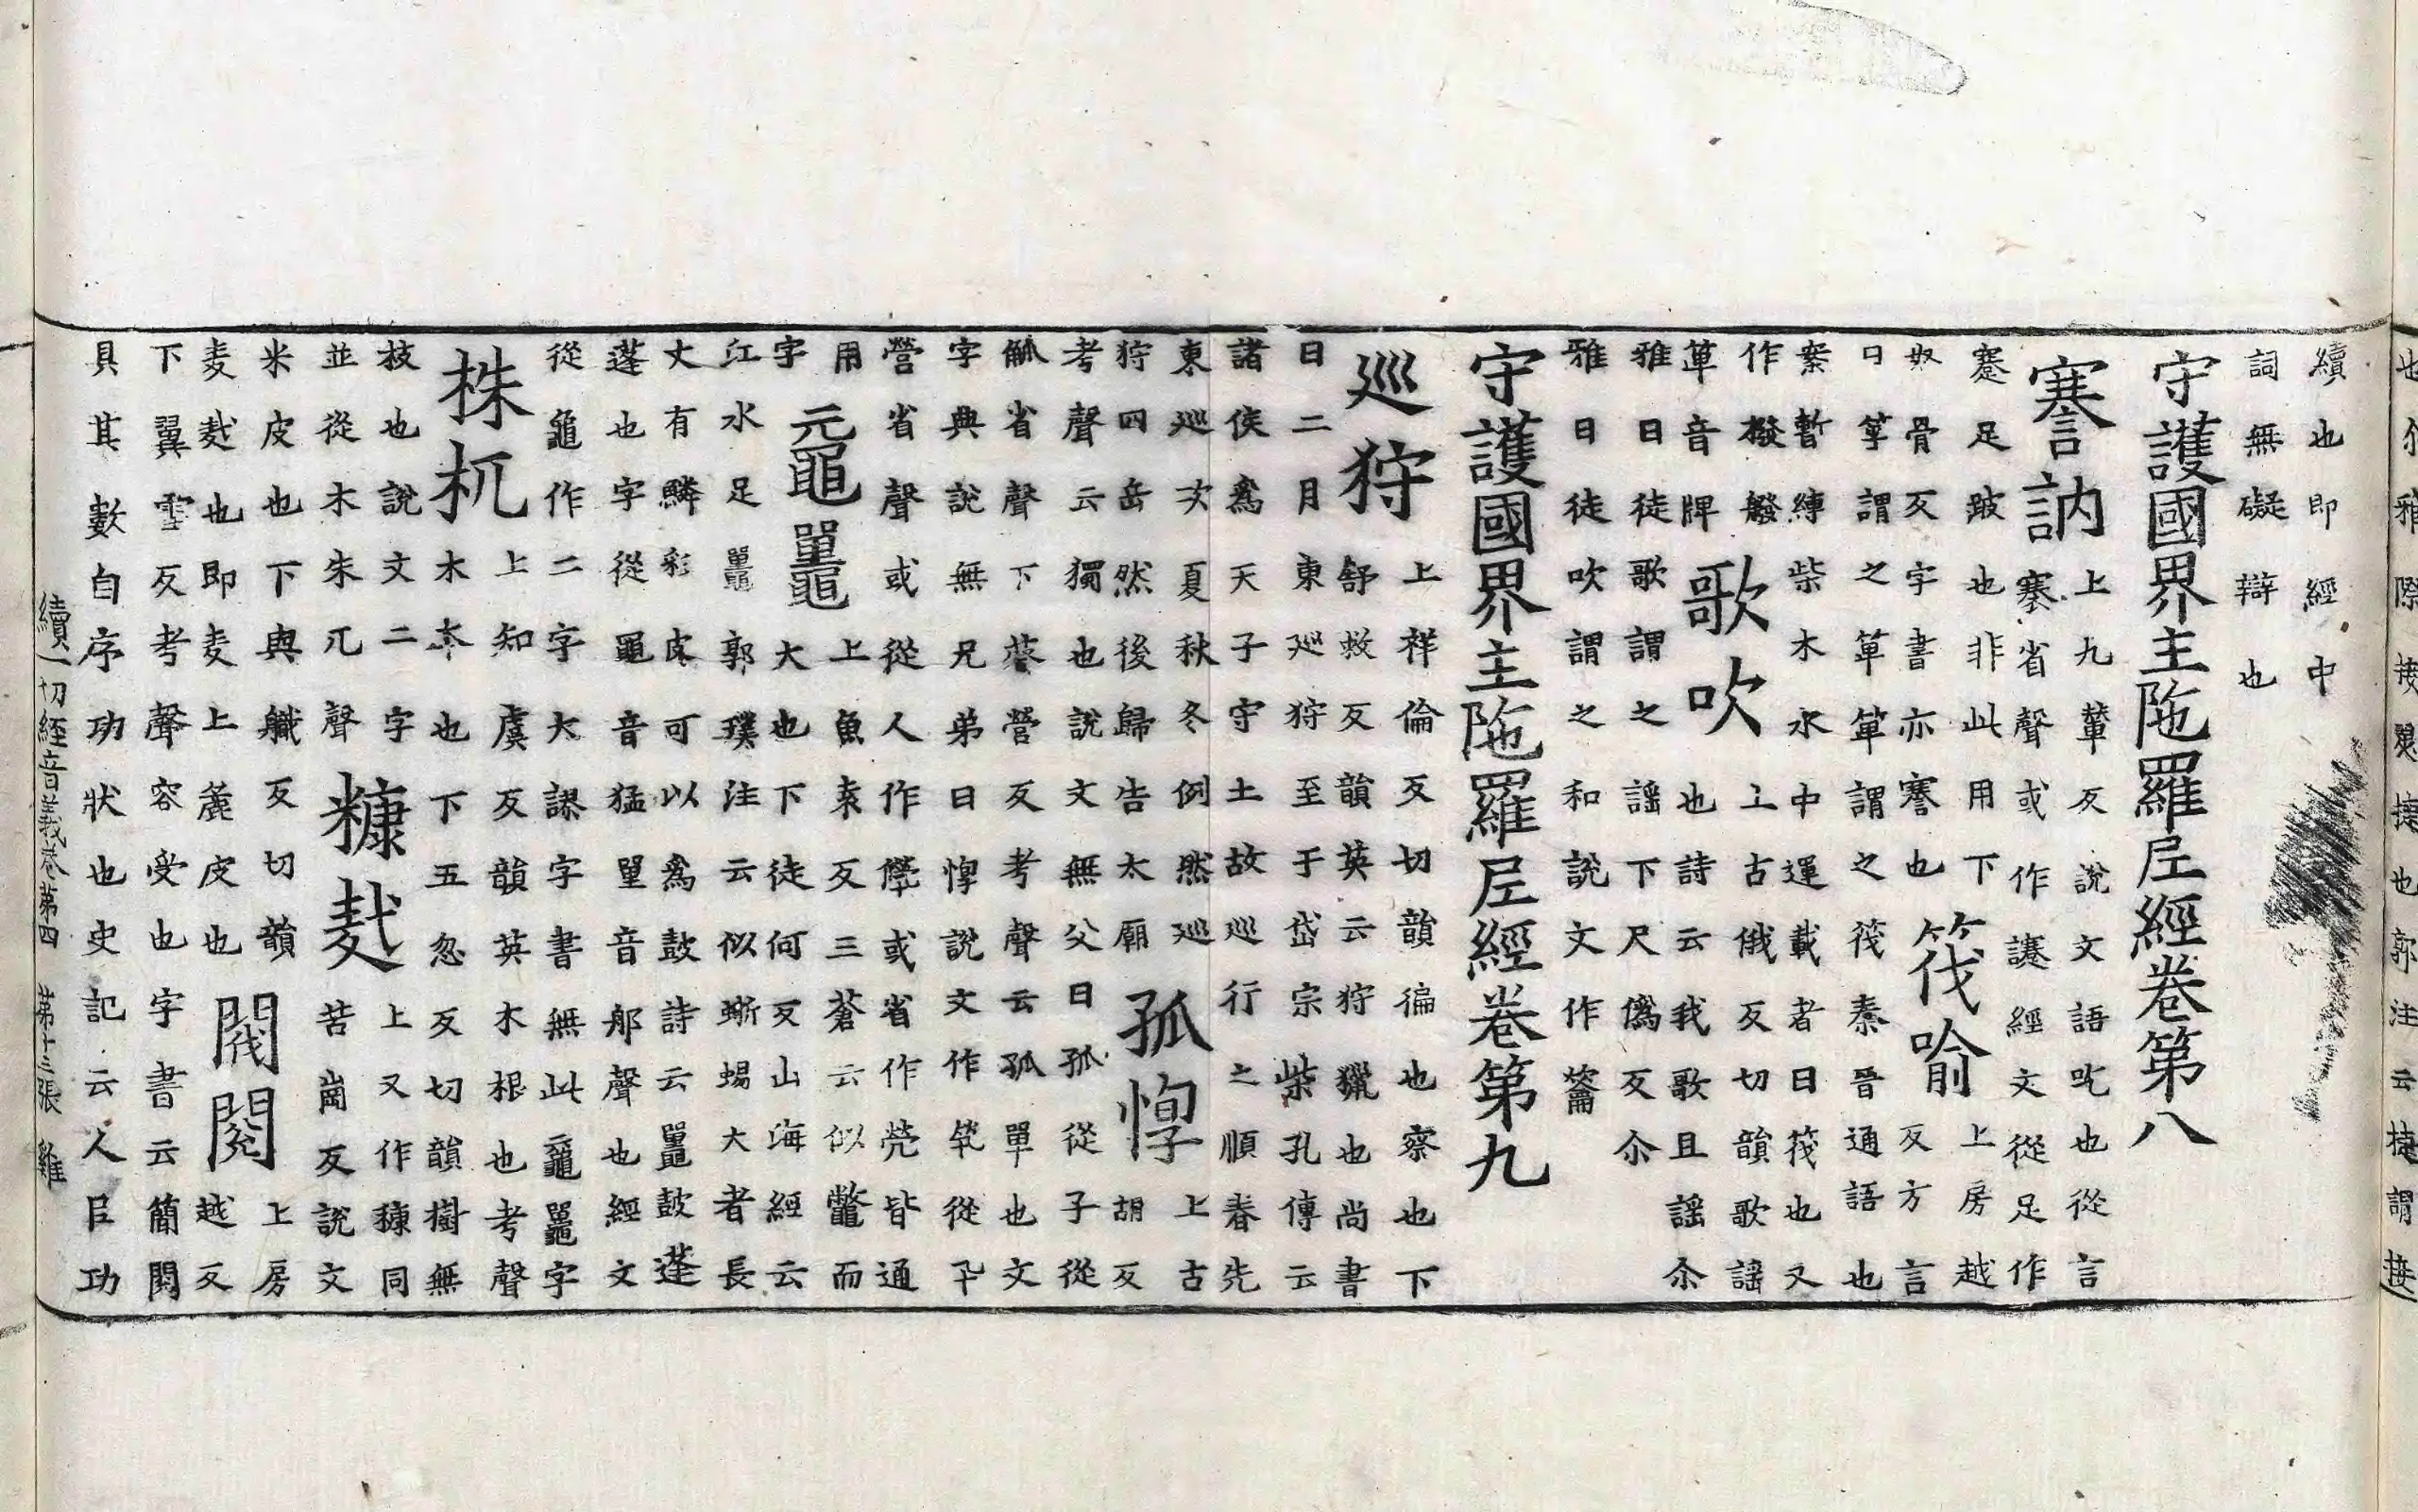 也尒雅際接翜捷也郭注云捷謂接
續也即經中
詞無礙辯也
守護國界主陁羅尼經卷第八
謇訥
上九輦反說文語吃也從言
謇省聲或作讓經文從足作
蹇足跛也非此用下
奴骨反字書亦謇也
筏喻
上房越
反方言
曰箄謂之箄箄謂之筏秦晉通語也
案暫縛柴木水中運載者曰筏也又
作橃艐
箄音牌
歌吹
上古俄反切韻歌謡
也詩云我歌且謡尒
雅曰徒歌謂之謡下尺僞反尒
雅曰徒吹謂之和說文作龡
守護國界主陁羅尼經卷第九
巡狩
上祥倫反切韻徧也察也下
舒救反韻英云狩獵也尚書
曰二月東巡狩至于岱宗柴孔傳云
諸侯爲天子守土故巡行之順春先
東巡次夏秋冬例然巡
狩四岳然後歸告太廟
孤惸
上古
胡反
考聲云獨也說文無父曰孤從子從
觚省聲下葵營反考聲云孤單也文
字典說無兄弟曰惸說文作煢從卂
營省聲或從人作㒯或省作茕皆通
用
字
黿鼉
上魚袁反三蒼云似鼈而
大也下徒何反山海經云
江水足鼉郭璞注云似蜥蜴大者長
丈有鱗彩皮可以爲鼓詩云鼉鼓蓬
蓬也字從黽音猛單音那聲也經文
從龜作二字大謬字書無此字
株杌
上知虞反韻英木根也考聲
木本也下五忽反切韻樹無
枝也說文二字
並從木朱兀聲
糠麩
上又作穅同
苦崗反說文
米皮也下與職反切韻
麦麩也即麦上麁皮也
閥閱
上房
越反
下翼雪反考聲容受也字書云簡閱
具其數自序功狀也史記云人臣功
續一切經音義卷第四 第十三張 雞